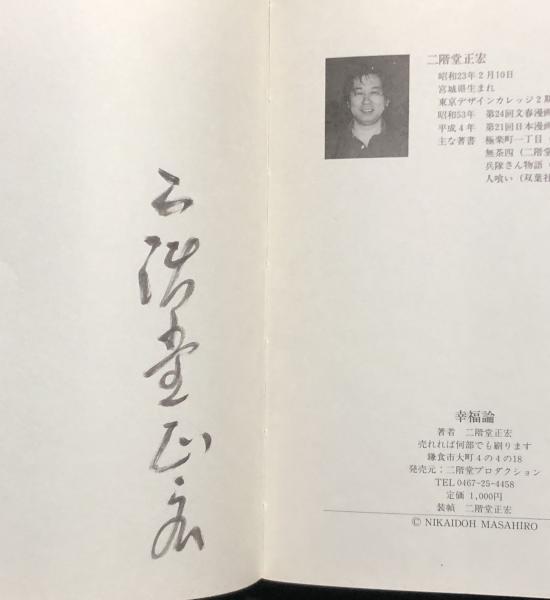 二階堂正宏
二階堂正宏
昭和23年2月10日
宮城県生まれ
東京デザインカレッジ2期
昭和53年 第24回文春漫画
平成4年 第21回日本漫画
主な著書 極楽町一丁目(
無茶四(二階堂
兵隊さん物語(
人喰い(双葉社
幸福論
著者 二階堂正宏
売れれば何部でも刷ります
鎌倉市大町4の4の18
発売元:二階堂プロダクション
TEL0467-25-4458
定価 1,000円
装幀 二階堂正宏
© NIKAIDOH MASAHIRO